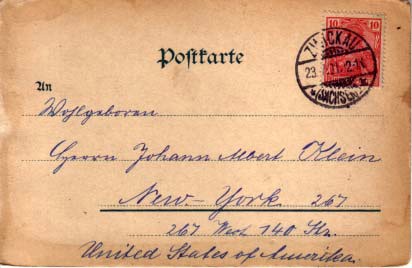 10 10
Postkarte
ZWICKAU
(SACHSEN)
An
Wohlgeboren
Herrn Johann Albert Klein
New-York 267
267 West 140 Str.
United States of Amerika.